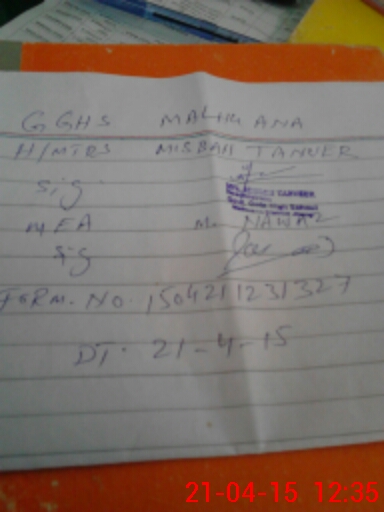 GGHS MALHUANA
H/MTRS MISBAH TANVER
Sig
MEA M. NAWAZ
Sig
FORM. NO. 150421231327
DT. 21-4-15
21-04-15 12:35